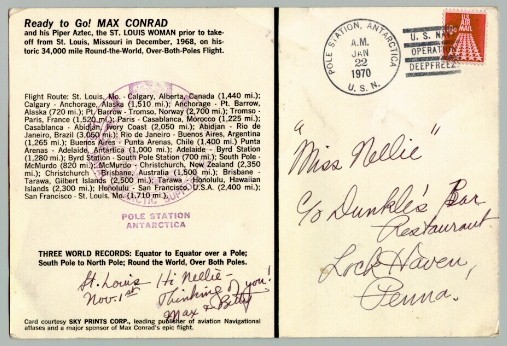 Ready to Go! MAX CONRAD
and his Piper Aztec, the ST. LOUIS WOMAN prior to take-
off from St. Louis, Missouri in December, 1968, on his-
toric 34,000 mile Round-the-World, Over-Both-Poles Flight.
Flight Route: St. Louis, Mo. - Calgary, Alberta, Canada (1,440 mi.);
Calgary - Anchorage, Alaska (1,510 mi.); Anchorage - Pt. Barrow,
Alaska (720 mi.); Pt. Barrow - Tromso, Norway (2,700 mi.); Tromso -
Paris, France (1,520 mi.); Paris - Casablanca, Morocco (1,225 mi.);
Casablanca - Abidjan, Ivory Coast (2,050 mi.); Abidjan - Rio de
Janeiro, Brazil (3,060 mi.); Rio de Janeiro - Buenos Aires, Argentina
(1,265 mi.); Buenos Aires - Punta Arenas, Chile (1,400 mi.); Punta
Arenas - Adelaide, Antartica (1,000 mi.); Adelaide - Byrd Station
(1,280 mi.); Byrd Station - South Pole Station (700 mi.); South Pole -
McMurdo (820 mi.); McMurdo - Christchurch, New Zealand (2,350
mi.); Christchurch - Brisbane, Australia (1,500 mi.); Brisbane -
Tarawa, Gilbert Islands (2,500 mi.); Tarawa - Honolulu, Hawaiian
Islands (2,300 mi.); Honolulu - San Francisco, U.S.A. (2,400 mi.);
San Francisco - St. Louis, Mo. (1,710 mi.).
POLE STATION
ANTARCTICA
THREE WORLD RECORDS: Equator to Equator over a Pole;
South Pole to North Pole; Round the World, Over Both Poles.
St. Louis
Nov. 1st
Hi Nellie -
Thinking of you!
Max & Betty
Card courtesy SKY PRINTS CORP., leading publisher of aviation Navigational
atlases and a major sponsor of Max Conrad's epic flight.
POLE STATION, ANTARCTICA
A.M.
JAN
22
1970
U.S.N.
U.S. NAVY
OPERATION
DEEPFREEZE
U.S.
AIR
MAIL
"Miss Nellie"
c/o Dunkle's Bar
Restaurant
Lock Haven,
Penna.